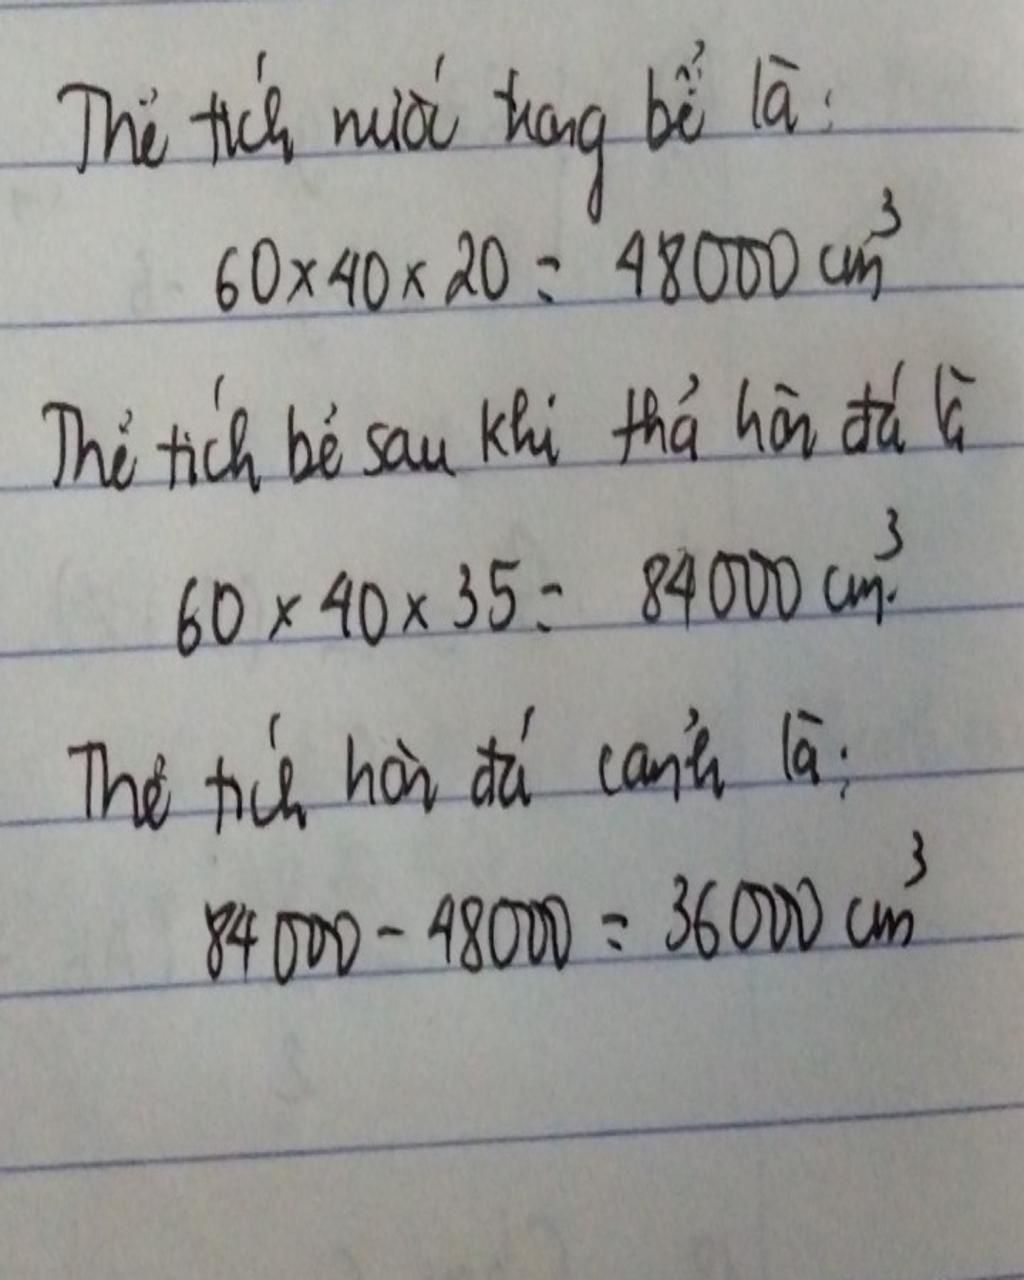 Thể tích nước trong bể là:
60 × 40 × 20 = 48000 cm³
Thể tích bể sau khi thả hòn đá là
60 × 40 × 35 = 84000 cm³.
Thể tích hòn đá cảnh là:
84000 - 48000 = 36000 cm³